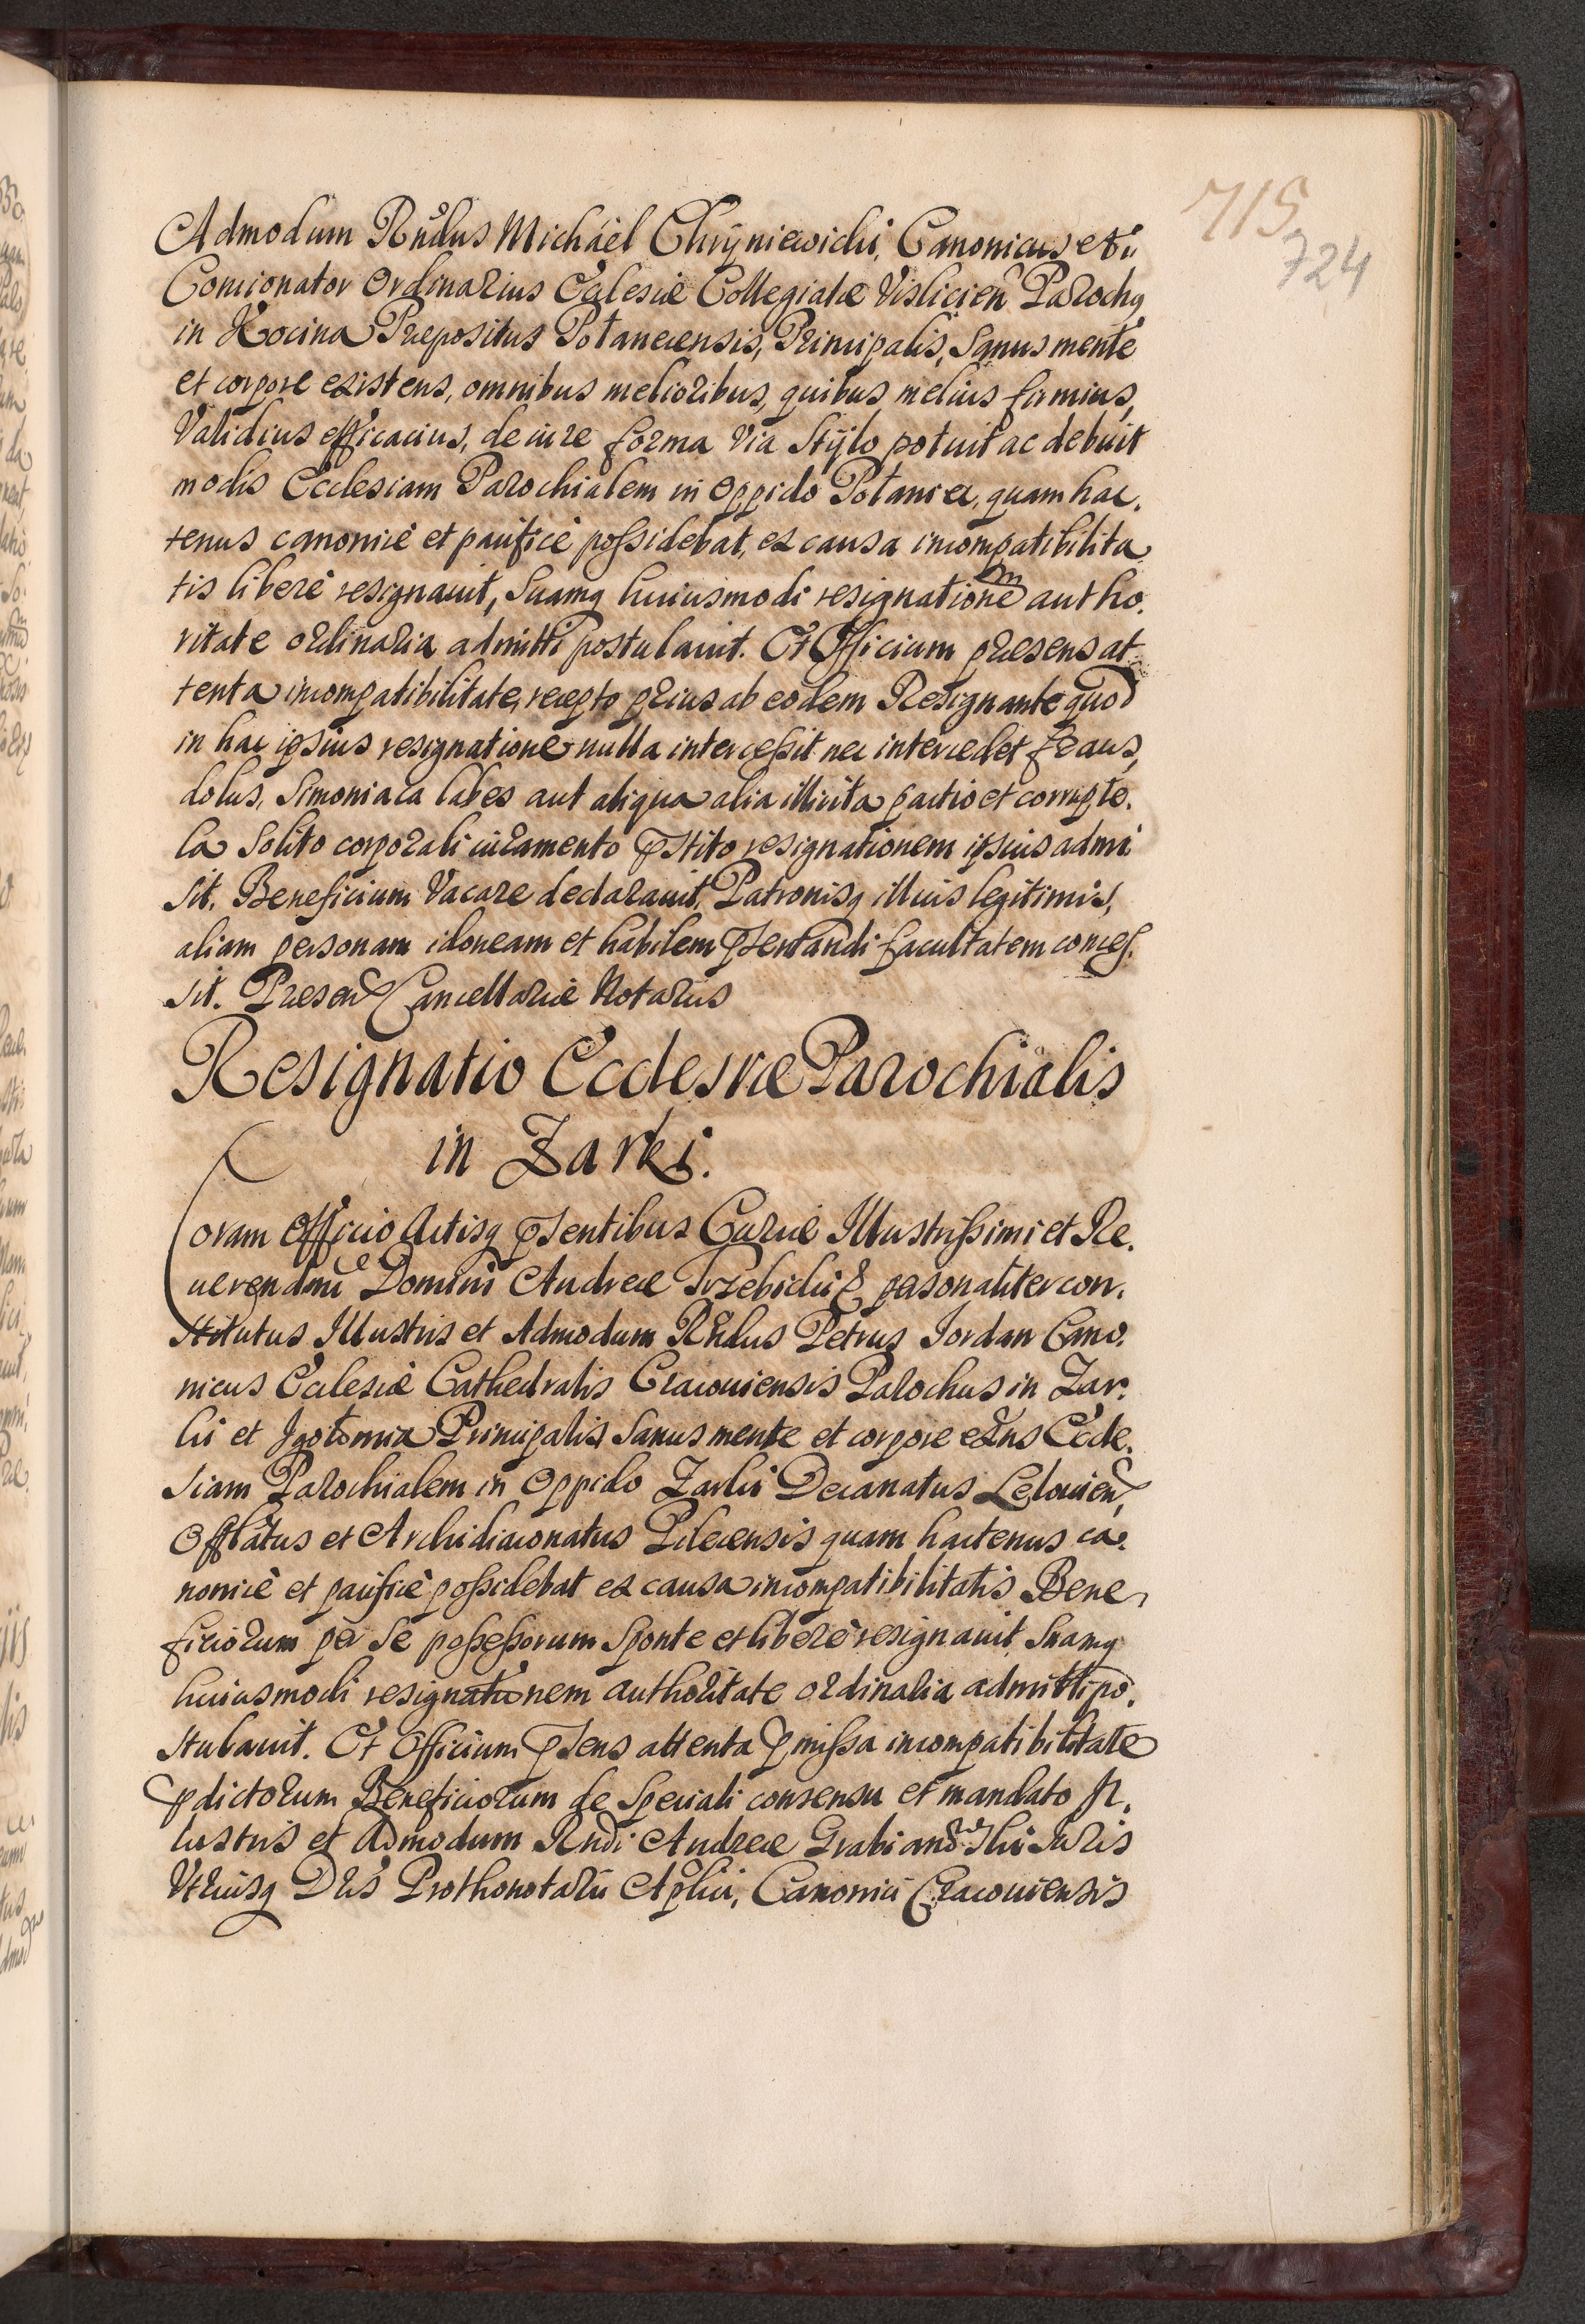 715
724
Admodum Rńdus Michäel Chryniewicki, Canonicus et
Concionator Ordinarius Ecclesiæ Collegiatæ Vislicien̄ Parochq
in Xocina Præpositus Połanecensis, Principalis, Sanus mente
et corpore existens, omnibus melioribus, quibus melius firmius,
Validius efficacius, de iure forma Via Stÿlo potuit ac debuit
modis Ecclesiam Parochialem in Oppido Połaniec, quam hac.
tenus canonicè et pacificè possidebat, ex causa incompatibilita
tis liberè resignauit, Suamq huiusmodi resignationem autho.
ritate ordinaria admitti postulauit. Et Officium præsens at
tenta incompatibilitate, recepto prius ab eodem Resignante quod
in hac ipsius resignatione nulla intercessit nec intercedet fraus,
dolus, Simoniaca labes aut aliqua alia illicita pactio et corrupte.
la Solito corporali iuramento p̄stito resignationem ipsius admi
sit. Beneficium Vacare declarauit, Patronisq illius legitimis,
aliam personam idoneam et habilem p̄sentandi facultatem conces.
sit. Præsen Cancellariæ Notarius
Resignatio Ecclesiæ Parochialis
in Zarki.
Coram Officio Actisq p̄sentibus Curiæ Illustrissimi et Re.
uerendmi Domini Andreæ Trzebicki & personaliter con.
stitutus Illustris et Admodum Rńdus Petrus Jordan Cano.
nicus Ecclesiæ Cathedralis Cracouiensis Parochus in Zar.
ki et Igołomia Principalis Sanus mente et corpore exn̄s Eccle.
siam Parochialem in Oppido Zarki Decanatus Lelouien,
Offlatus et Archidiaconatus Pilecensis quam hactenus ca.
nonicè et pacificè possidebat ex causa incompatibilitatis Bene
ficiorum per Se possessorum Sponte et liberè resignauit, Suamq
huiusmodi resignationem authoritate ordinaria admitti po.
stulauit. Et Officium p̄sens attenta p̄missa incompatibilitate
p̄dictorum Beneficiorum de Speciali consensu et mandato Il.
lustris et Admodum Rńdi Andreæ Grabianowski Iuris
Vtriusq Dris Prothonotarii Aplici, Canonici Cracouiensis